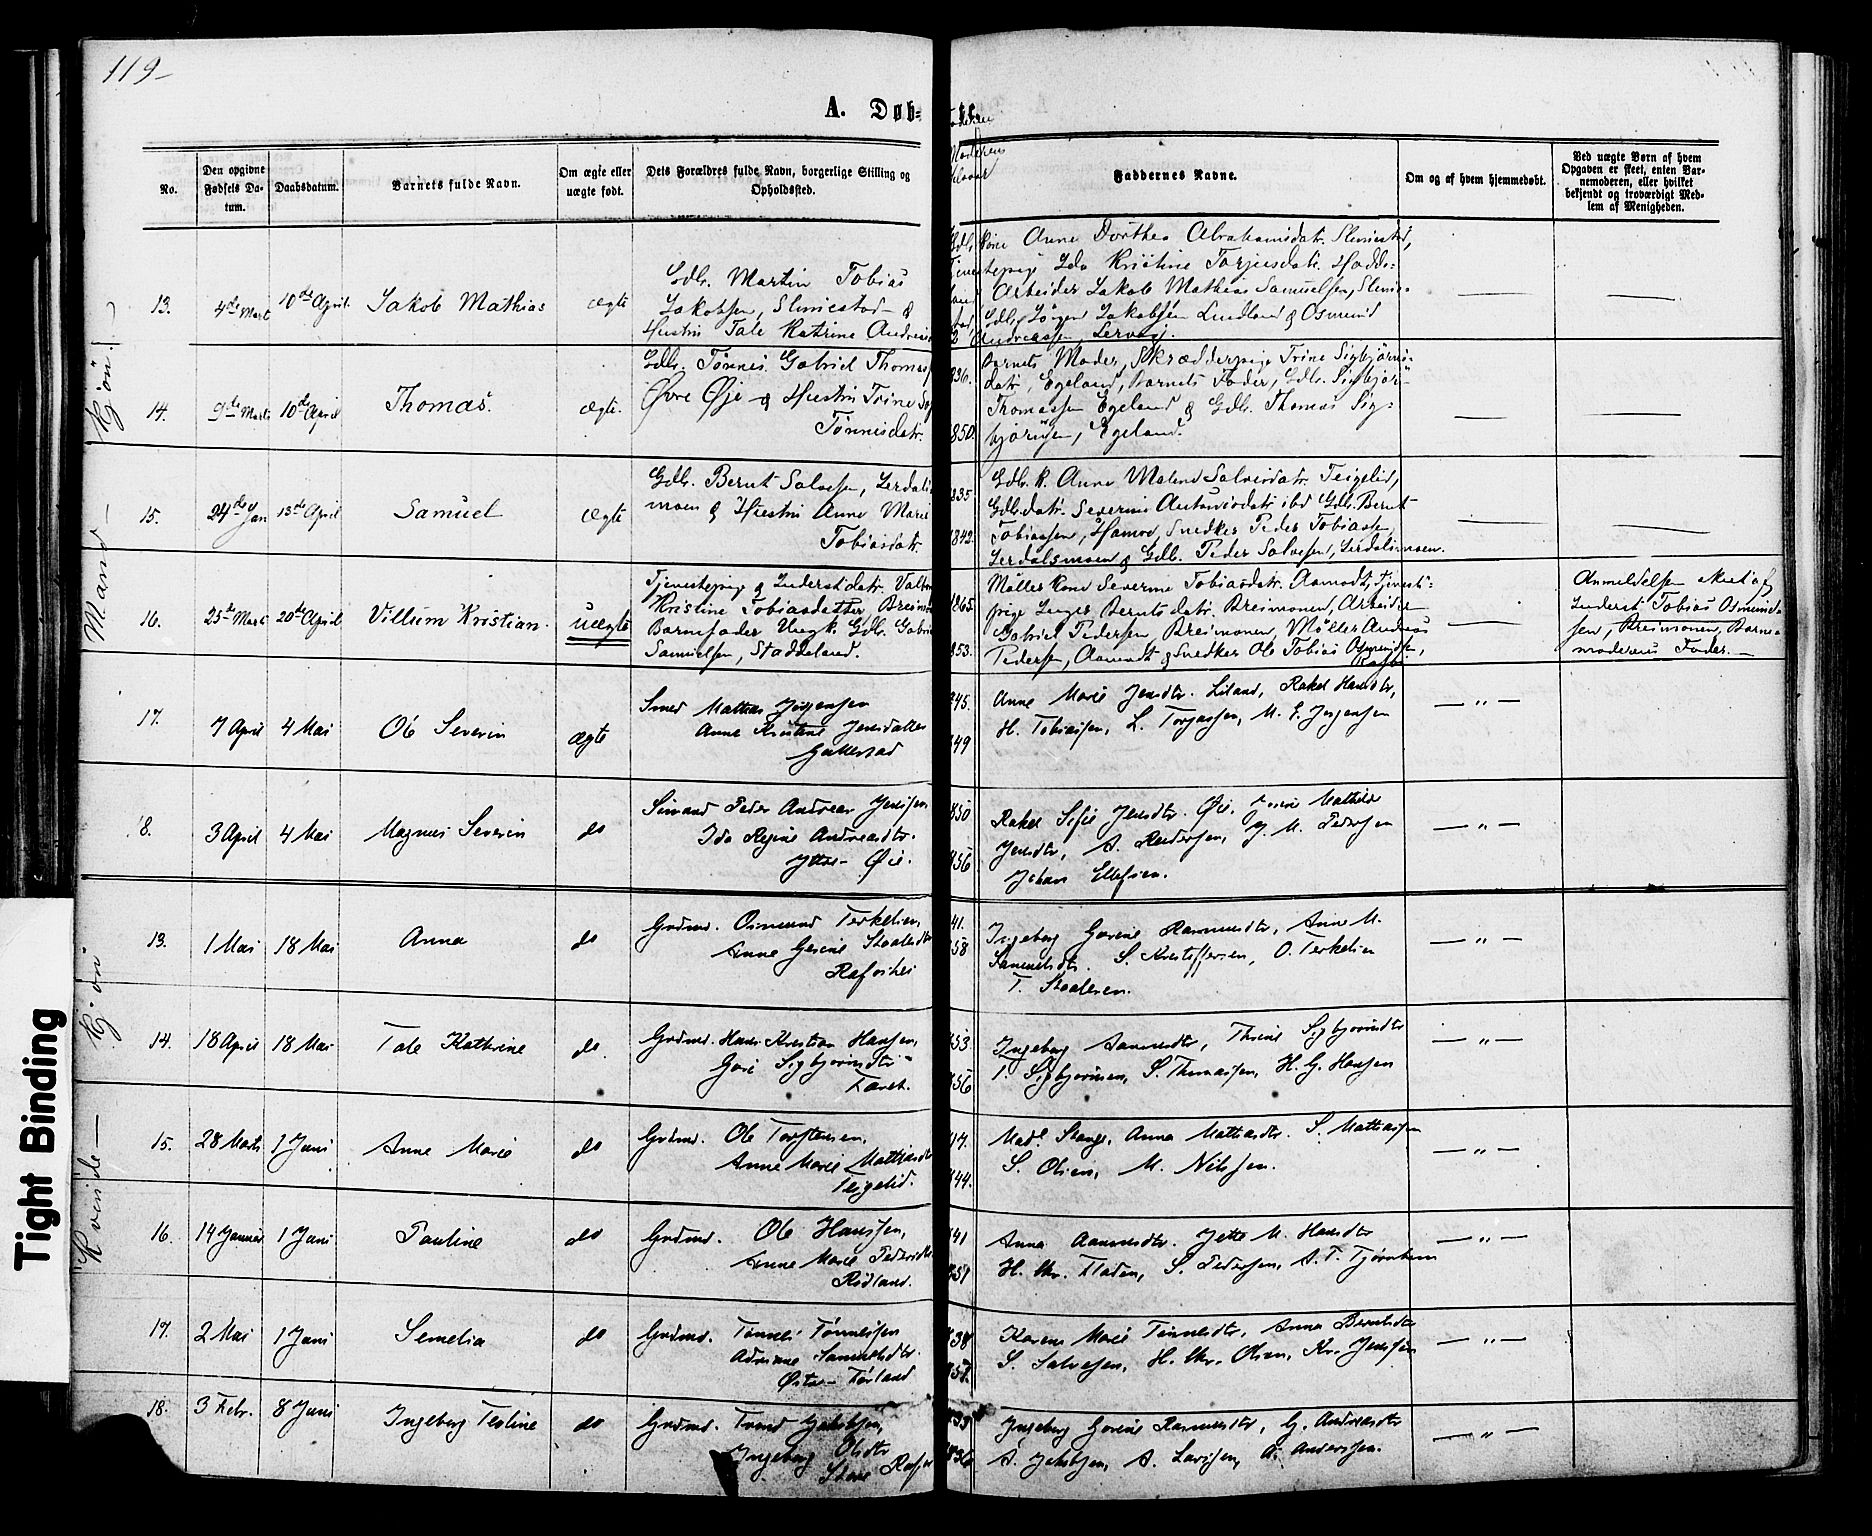 119-
A. Døb- te.
No.
Den opgivne Fødsels Da-tum.
Daabsdatum.
Barnets fulde Navn.
Om ægte eller uægte født.
Dets Forældres fulde Navn, borgerlige Stilling og Opholdssted.
Faddernes Navne.
Om og af hvem hjemmedøbt.
Ved uægte Børn af hvem Opgaven er skeet, enten Bar-nemoderen, eller hvilket bekjendt og troværdigt Med-lem af Menigheden.
Mand- Kjøn
13. 4de Mart 10de April Jakob Mathias ægte
Gdb. Martin Tobias
Jakobsen, Slimestad &
Hustru Tale Katrine Andreas
Kone Anne Dorthea Abrahamsdatr. Slimestad,
Tjenestepige Ida Kristine Torjusdatr.
Arbeider Jakob Mathias Samuelsen, Slime-
Gdb. Jørgen Jakobsen Lindland & Osmund
Andreassen, Lervig.
14. 9de Marts 10de April Thomas. ægte.
Gdb. Tønnes Gabriel Thomas
Øvre Øje & Hustru Trine
Tønnesdatr.
836.
850.
Barnets Moder, Skrædderpige Trine Sigbjørns-
datr, Egeland, Barnets Fader, Gdb. Sigbjør
Thomassen Egeland & Gdb. Thomas Sig-
bjørnsen, Egeland.
15. 24de Jan 13de April Samuel ægte
Gdb. Bernt Salvesen, Lerdals
moen & Hustru Anne Marie
Tobiasdatr.
835.
1842.
Gdb. k. Anne Malene Salvesdatr. Teigelid,
Gdb.datr. Severine Antonisdatr ibd Gdb. Bernt
Tobiassen, Hamod, Snedker Peder Tobiassen,
Lerdalsmoen & Gdb. Peder Salvesen, Lerdalsmoen.
16. 25de Mart 20de April Villum Kristian. uægte
Tjenestepige & Inderstdatr. Valb
Kristine Tobiasdatter Breimo
Barnefader Ungk. Gdb. Gabri
Samuelsen, Staddeland.
1865.
853.
Møllerkone Severine Tobiasdatr. Aamodt, Tjeneste-
pige Inger Berntsdatr. Breimonen, Arbeider
Gabriel Pedersen, Breimonen, Møller Andreas
Pedersen, Aamodt & Snedker Ole Tobias Osmundsen,
Anmeldelsen skeet af
Inderst Tobias Osmunds-
sen, Breimonen, Barne-
moderens Fader.
17. 7 April 4 Mai Ole Severin ægte
Smed Mathias Jørgensen
Anne Kristine Jensdatter
845.
849
Anne Marie Jensdtr. Liland, Rakel Hansdtr,
H. Tobiassen, L. Torjussen, M. E. Jørgensen
— " —
18. 3 April 4 Mai Magnus Severin do
Peder Andreas Jensen
Ida Regine Andreasdtr.
Yttre- Øie.
850
856
Rakel Sofie Jensdtr. Øie, Mathilde
Jensdtr, A. Pedersen, J. M. Pedersen
Johan Ellefsen.
— " —
Kvinde- Kjøn
13. 1 Mai 18 Mai Anna do
Grdmd. Osmund Terkelsen,
Anne Gurine
41.
858
Ingeborg Gurine Rasmusdtr, Anne M.
Samuelsdtr. S. Kristoffersen, O. Terkelsen
T. Staalesen.
— " —
14. 18 April 18 Mai Tale Kathrine do.
Grdmd. Hans Kristian Hansen,
Guri Sigbjørnsdtr
853
856
Ingeborg Aanensdtr, Thrine Sigbjørnsdtr
T. Sigbjørnsen, S. Thomassen, H. G. Hansen
— " —
15. 28 Marts 1 Juni Anne Marie do
Grdmd. Ole Torstensen,
Anne Marie Mathiasdtr
Teigelid.
47.
844.
Mad. Stange, Anna Mathiasdtr. S. Mathiassen
S. Olsen, M. Nilssen.
— " —
16. 14 Januar 1 Juni Pauline do
Grdmd. Ole Hanssen,
Anne Marie Pedersdtr
Rødland.
41
851
Anna Aanensdtr. Jette M. Hansdtr
H. Kr. Fladen, S. Pedersen, A. T. Tjørnhom
— " —
17. 2 Mai 1 Juni Semelia do
Grdmd. Tønnes Tønnessen
Adriane Samuelsdtr.
Østre- Førland
838
857.
Karen Marie Tønnesdtr, Anna Berntsdtr
S. Salvesen, H. Kr. Olsen, Kr. Jenssen
— " —
18. 3 Febr. 8 Juni Ingeborg Tesline do
Grdmd. Trond Jakobsen,
Ingeborg Olsdtr
Store
833
836
Ingeborg Gurine Rasmusdtr, G. Andreasdtr
A. Jakobsen, A. Larsen, A. Anderssen.
— " —
Tight Binding